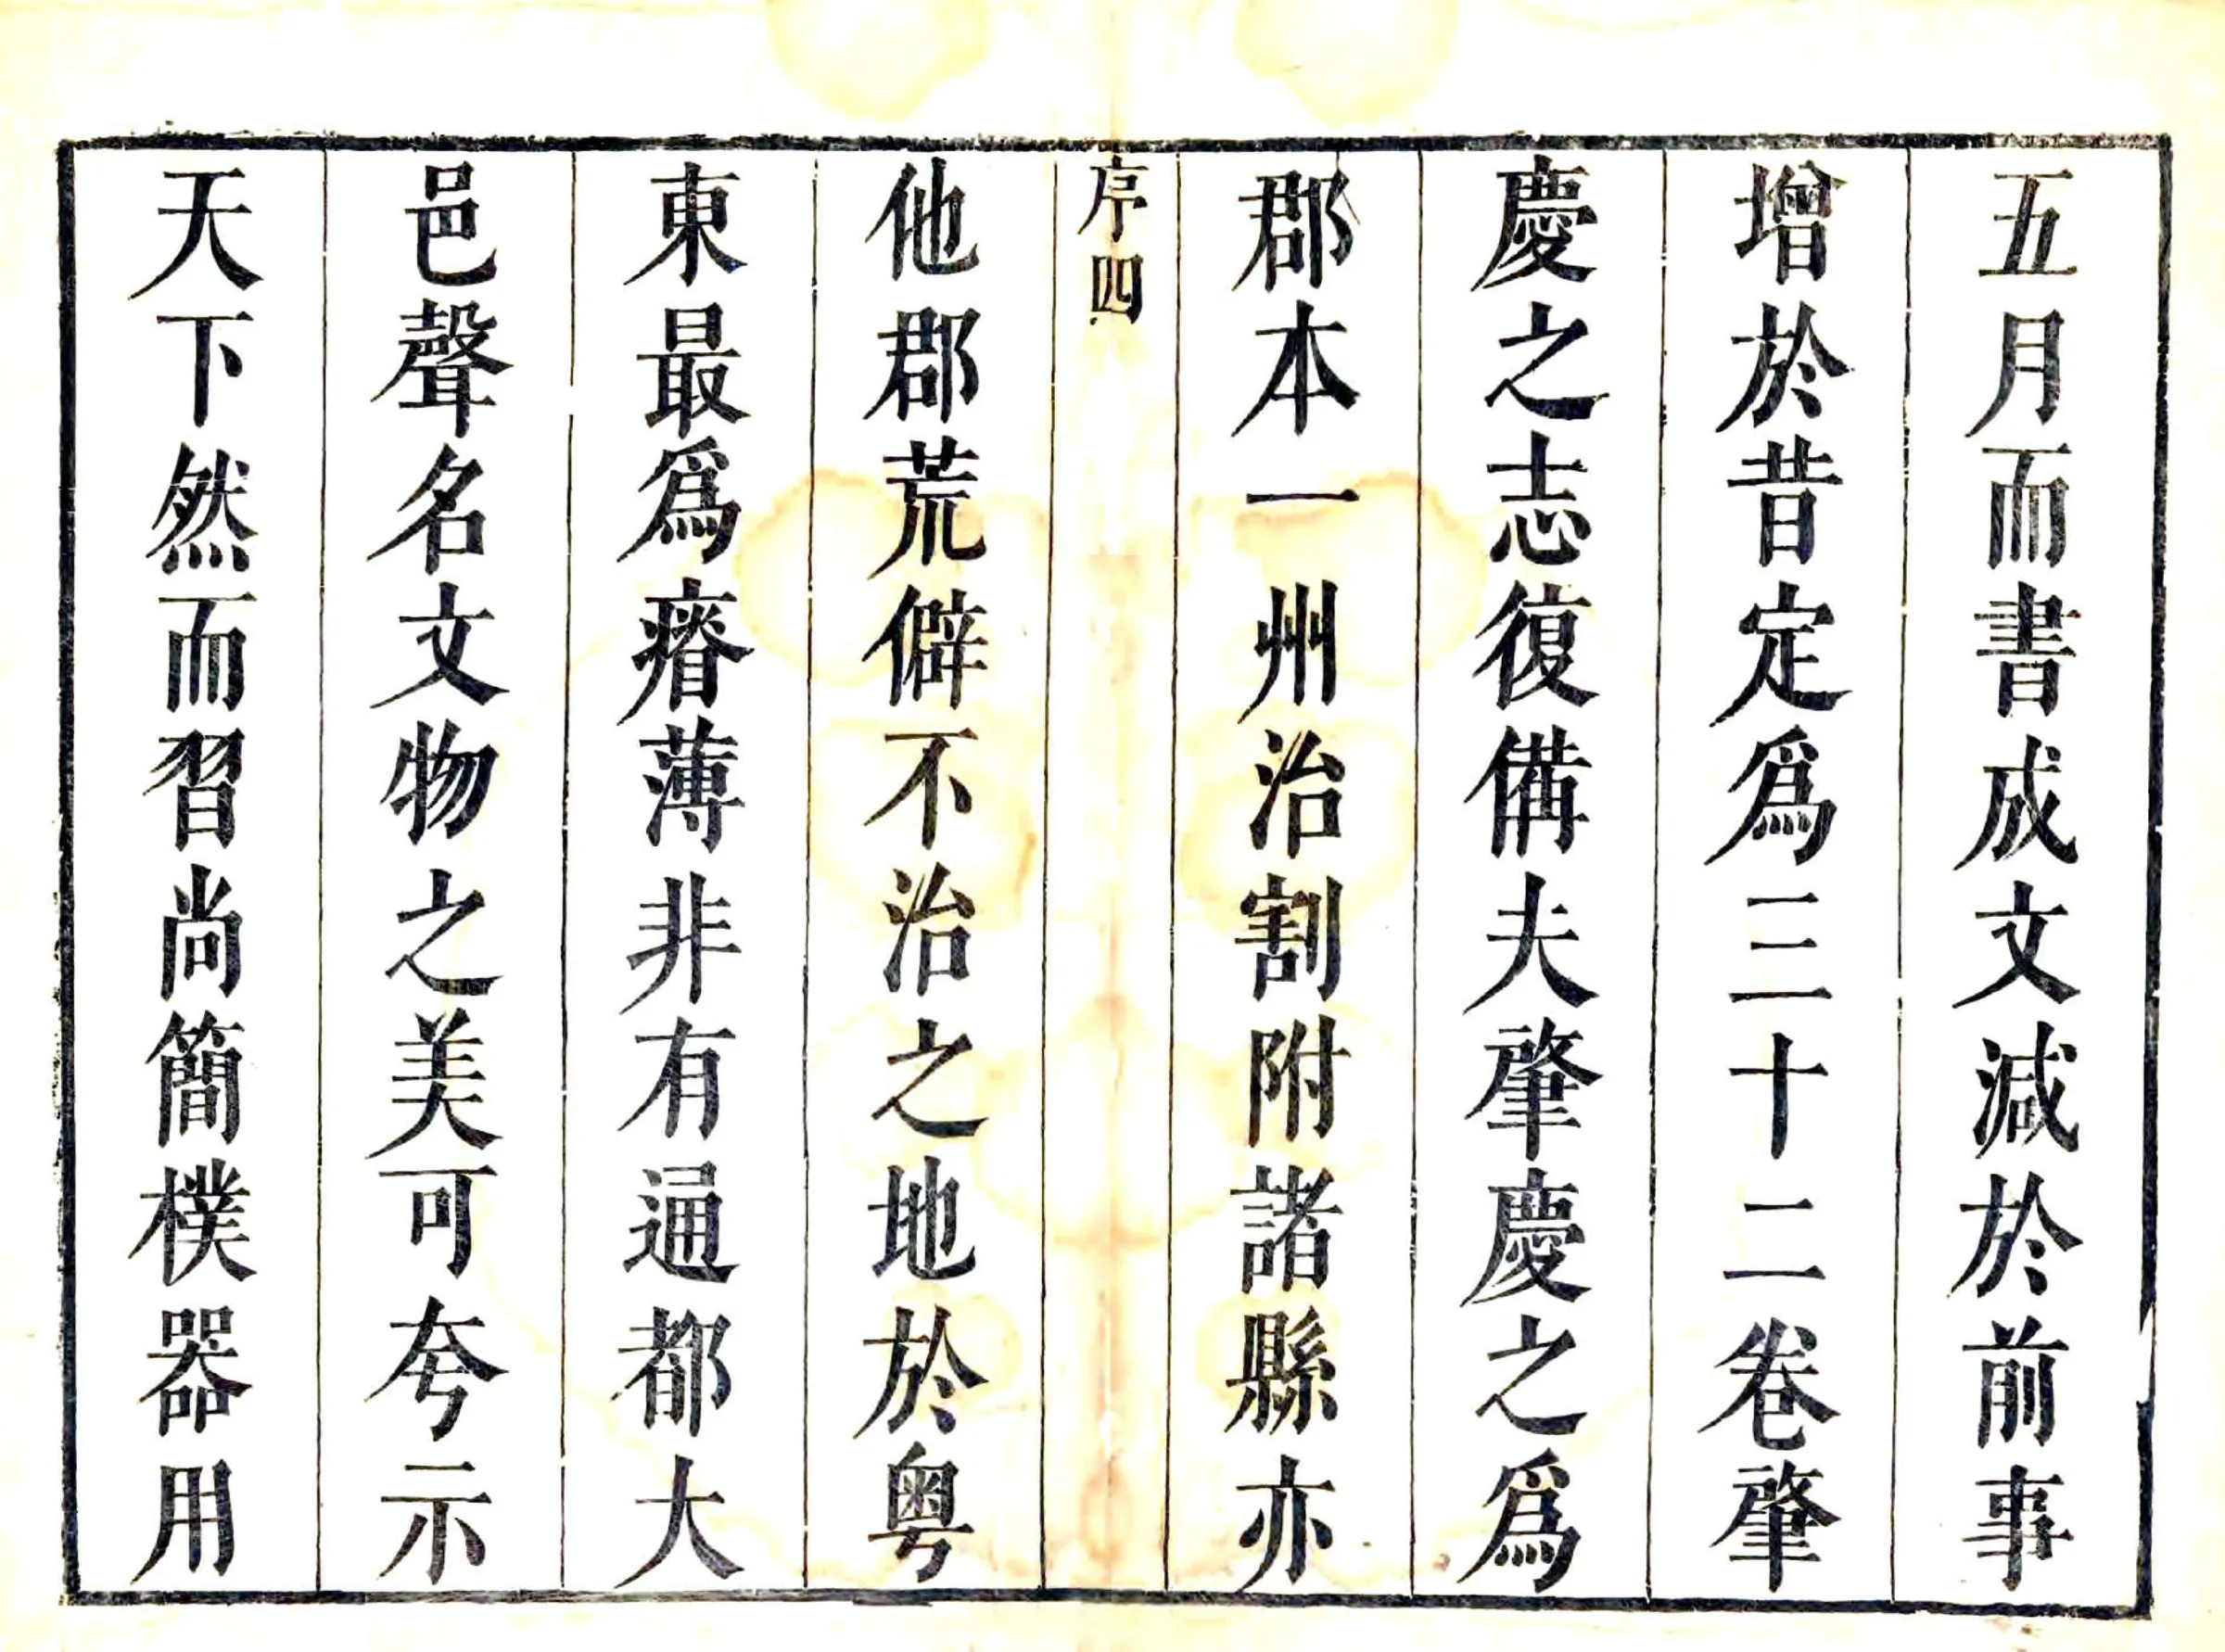 五月而書成文減於前事
增於昔定爲三十二卷肇
慶之志復備夫肇慶之爲
郡本一州治割附諸縣亦
序四
他郡荒僻不治之地於粤
東最爲瘠薄非有通都大
邑聲名文物之美可夸示
天下然而習尚簡樸器用